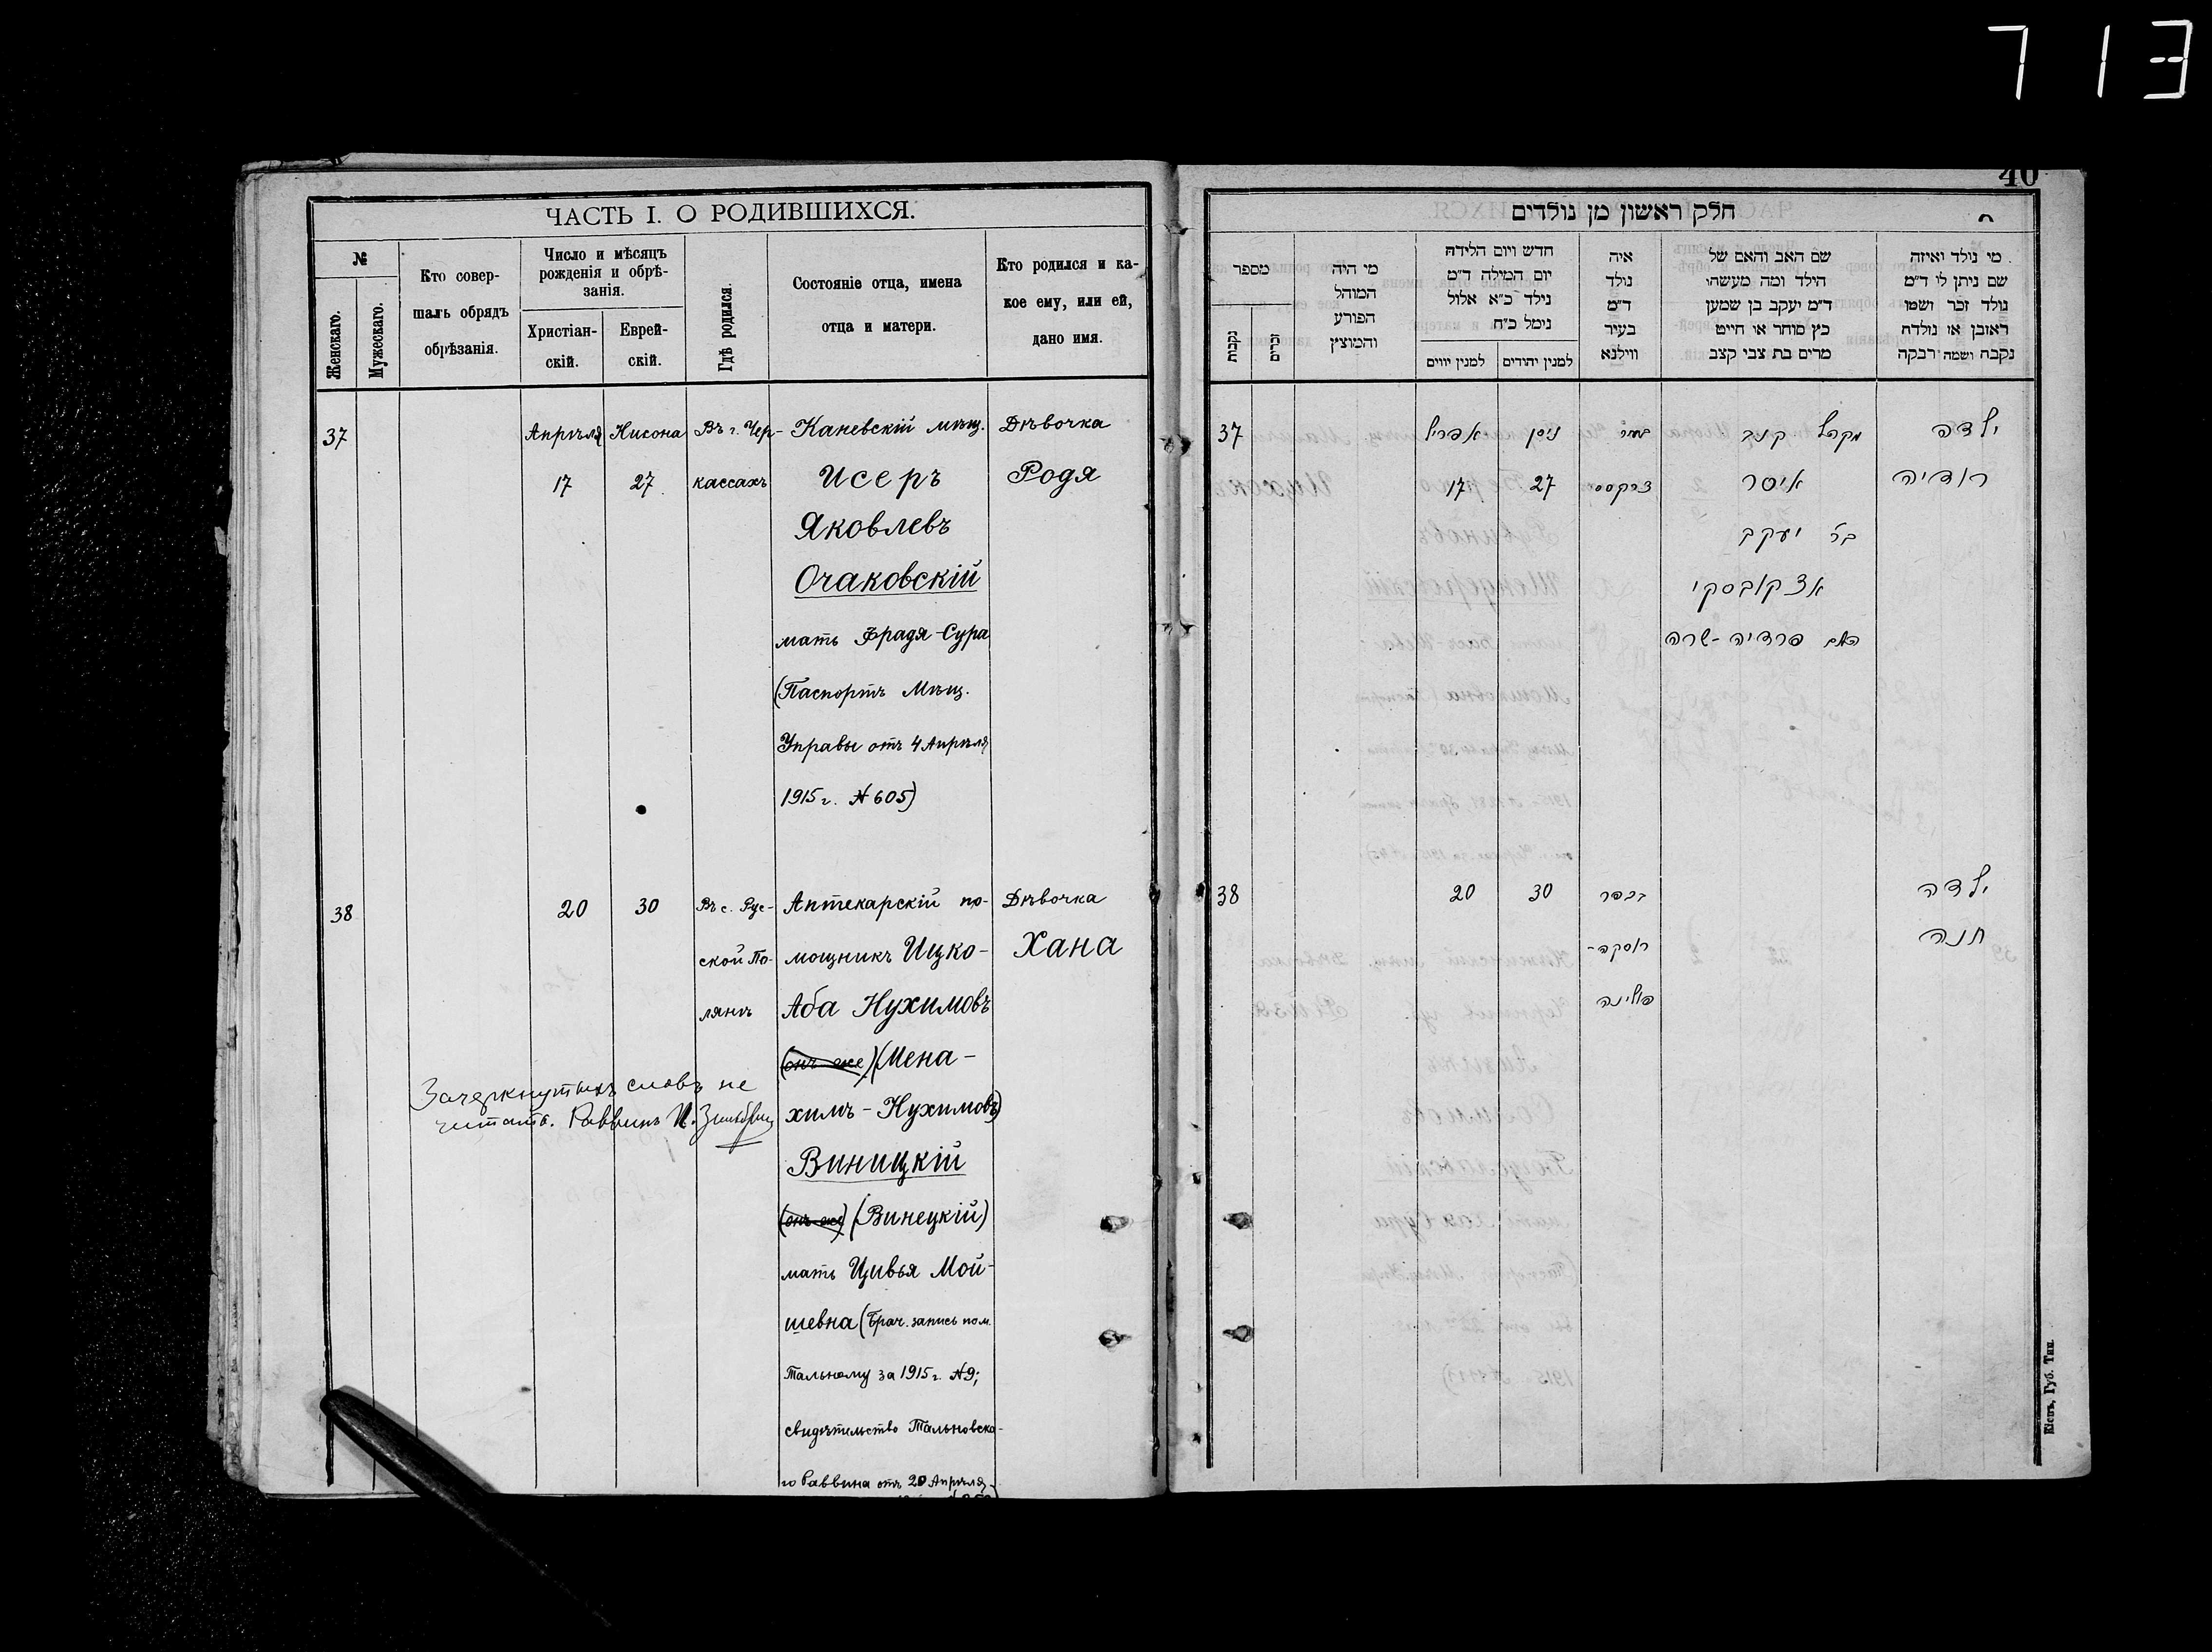 713
ЧАСТЬ I. О РОДИВШИХСЯ.
№
Женскаго.
Мужескаго.
Кто совер-
шалъ обрядъ
обрѣзанія.
Число и мѣсяцъ
рожденія и обрѣ-
занія.
Христіан-
скій.
Еврей-
скій.
Гдѣ родился.
Состояніе отца, имена
отца и матери.
Кто родился и ка-
кое ему, или ей,
дано имя.
37
Апрѣля
17
Нисона
27
Въ г. Чер-
кассахъ
Каневскій мѣщ.
Исеръ
Яковлевъ
Очаковскій
мать Фрадя-Сура
(Паспортъ Мѣщ.
Управы отъ 4 Апрѣля
1915 г. № 605)
Дѣвочка
Родя
38
20
30
Въ с. Рус-
ской По-
лянѣ
Аптекарскій по-
мощникъ Ицко-
Аба Нухимовъ
(онъ же) (Мена-
химъ-Нухимовъ)
Виницкій
(онъ же) (Винецкій)
мать Цивья Мой-
шевна (Брач. запись по м.
Тальному за 1915 г. № 9;
свидѣтельство Тальновска-
го Раввина отъ 20 Апрѣля
Дѣвочка
Хана
Зачеркнутыхъ словъ не
читать. Раввинъ И.
40
חלק ראשון מן נולדים
מספר
נקבות
זכרים
מי היה
המוהל
הפורע
והמוצץ
חדש ויום הלידה
יום המילה ד״מ
נילד כ״א אלול
נימל כ״ח
למנין יווים
למנין יהודים
איה
נולד
ד״מ
בעיר
ווילנא
שם האב והאם של
הילד ומה מעשהו
ד״מ יעקב בן שמען
כץ סוחר או חייט
מרים בת צבי קצב
מי נולד ואיזה
שם ניתן לו ד״מ
נולד זכר ושמו
ראובן או נולדה
נקבה ושמה רבקה
37
אפריל
17
ניסן
27
בעיר
צרקססי
מקהל קנב
איסר
בר׳ יעקב
אצקובסקי
האם פרדיה-שרה
ילדה
רודיה
38
20
30
בכפר
רוסקה-
פולינה
ילדה
חנה
Кіевъ, Губ. Тип.